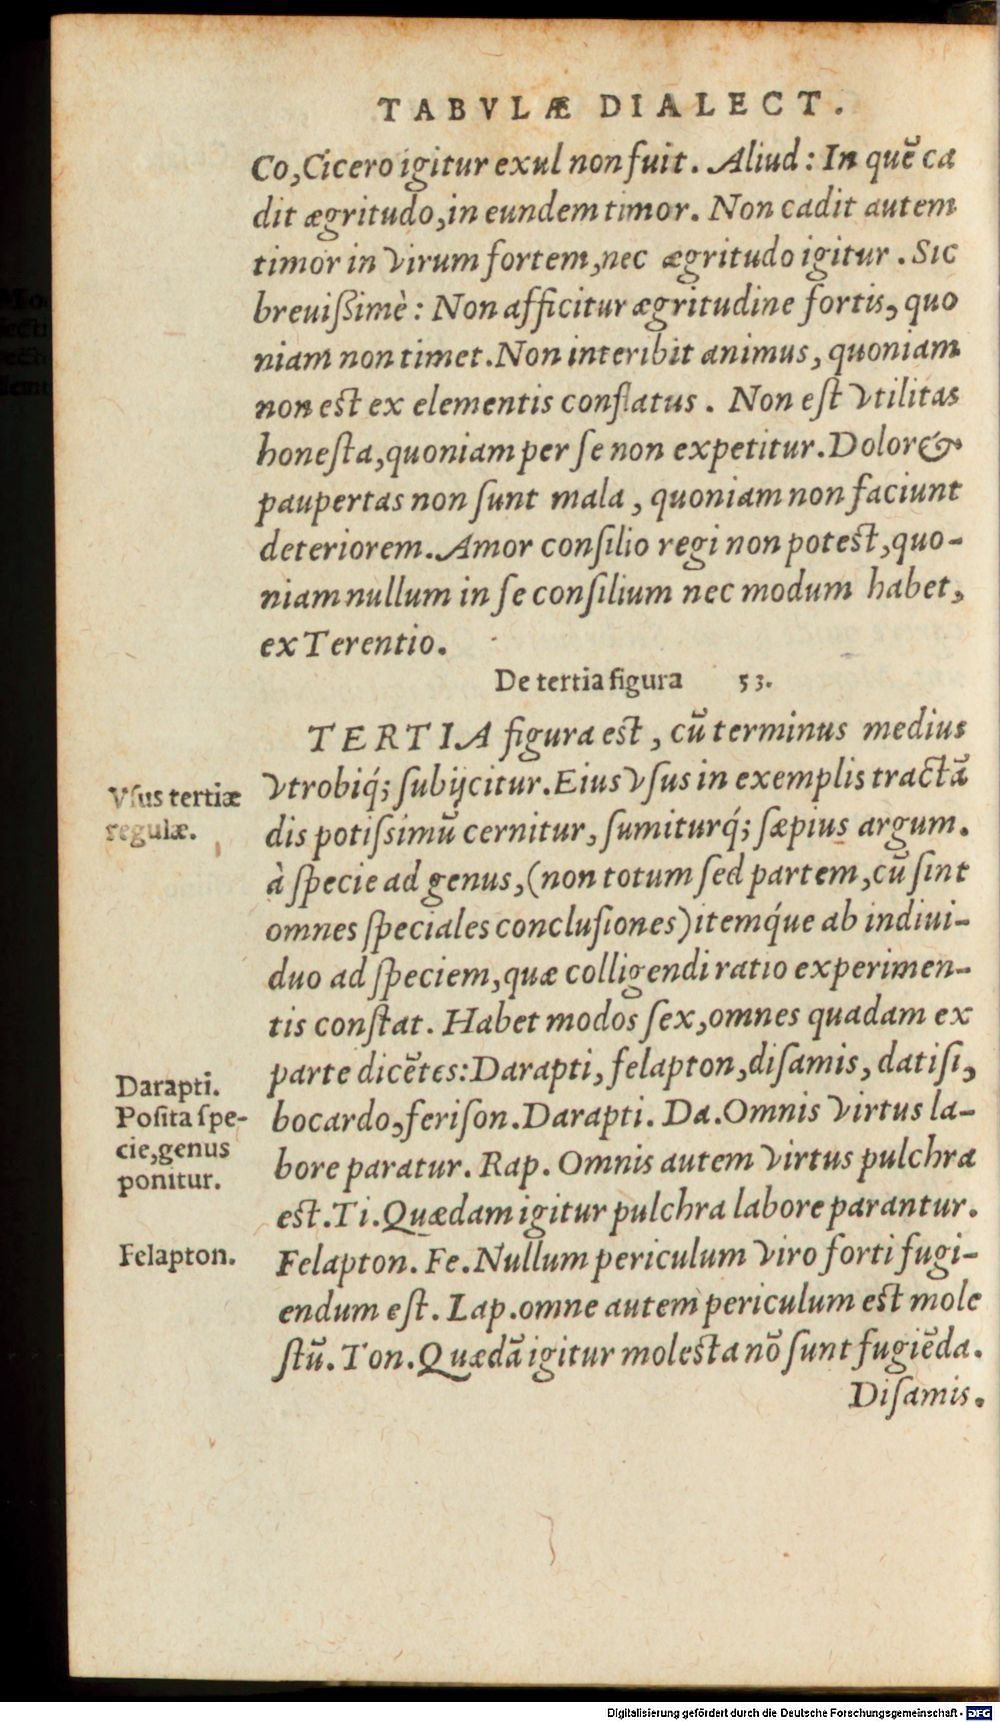 TABVLÆ DIALECT.
Co,Cicero igitur exul non fuit. Aliud: In quē ca
dit ægritudo,in eundem timor. Non cadit autem
timor in virum fortem,nec ægritudo igitur. Sic
breuißimè: Non afficitur ægritudine fortis, quo
niam non timet. Non interibit animus, quoniam
non est ex elementis conflatus. Non eſt vtilitas
honeſta,quoniam per ſe non expetitur. Dolor &
paupertas non ſunt mala, quoniam non faciunt
deteriorem. Amor conſilio regi non poteſt,quo-
niam nullum in ſe conſilium nec modum habet,
ex Terentio.
De tertia figura 53.
TERTIA figura est, cū terminus medius
Vſus tertiæ
regulæ.
vtrobiq́; ſubijcitur. Eius vſus in exemplis tractā
dis potiſsimū cernitur, ſumiturq́; ſæpius argum.
à ſpecie ad genus, (non totum ſed partem,cū ſint
omnes ſpeciales concluſiones) itemq́ue ab indiui-
duo ad ſpeciem,quæ colligendi ratio experimen-
tis conſtat. Habet modos ſex,omnes quadam ex
parte dicētes: Darapti, felapton, diſamis, datiſi,
Darapti.
Poſita ſpe-
cie,genus
ponitur.
bocardo,feriſon. Darapti. Da. Omnis virtus la-
bore paratur. Rap. Omnis autem virtus pulchra
est. Ti. Quædam igitur pulchra labore parantur.
Felapton.
Felapton. Fe. Nullum periculum viro forti fugi-
endum eſt. Lap. omne autem periculum est mole
ſtū. Ton. Quædā igitur molesta nō ſunt fugiēda.
Diſamis.
Digitalisierung gefördert durch die Deutsche Forschungsgemeinschaft - DFG